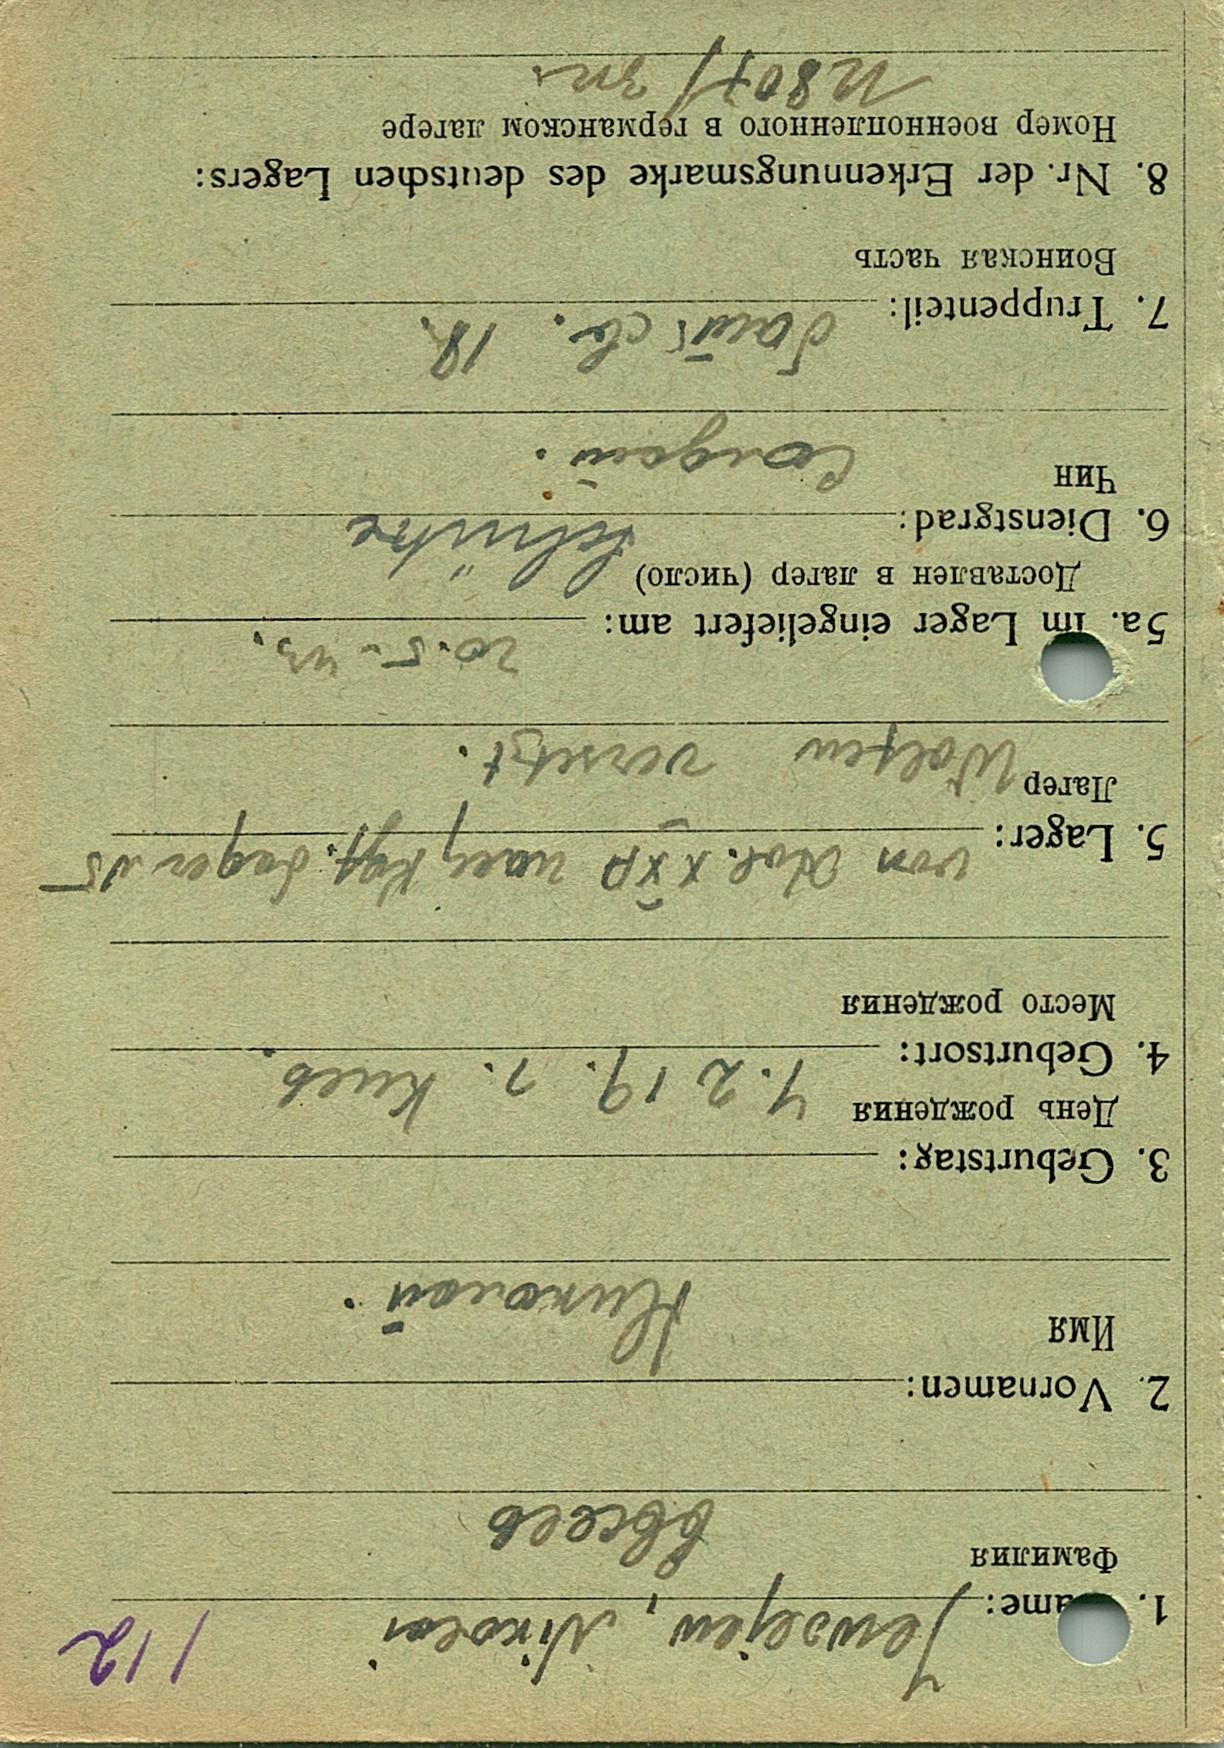 112
Jewsejew, Nikolai
1. ame:
Фамилия
Евсеев
2. Vornamen:
Имя
Николай.
3. Geburtstag:
День рождения
4. 2 19. г. Киев.
4. Geburtsort:
Место рождения
von XXA nach Kgf. Lager
5. Lager:
Лагер
Wolfen versetzt.
20.5.43.
5a. Im Lager eingeliefert am:
Доставлен в лагер (число)
Schütze
6. Dienstgrad:
Чин
Солдат.
18.
7. Truppenteil:
Воинская часть
8. Nr. der Erkennungsmarke des deutschen Lagers:
Номер военнопленного в германском лагере